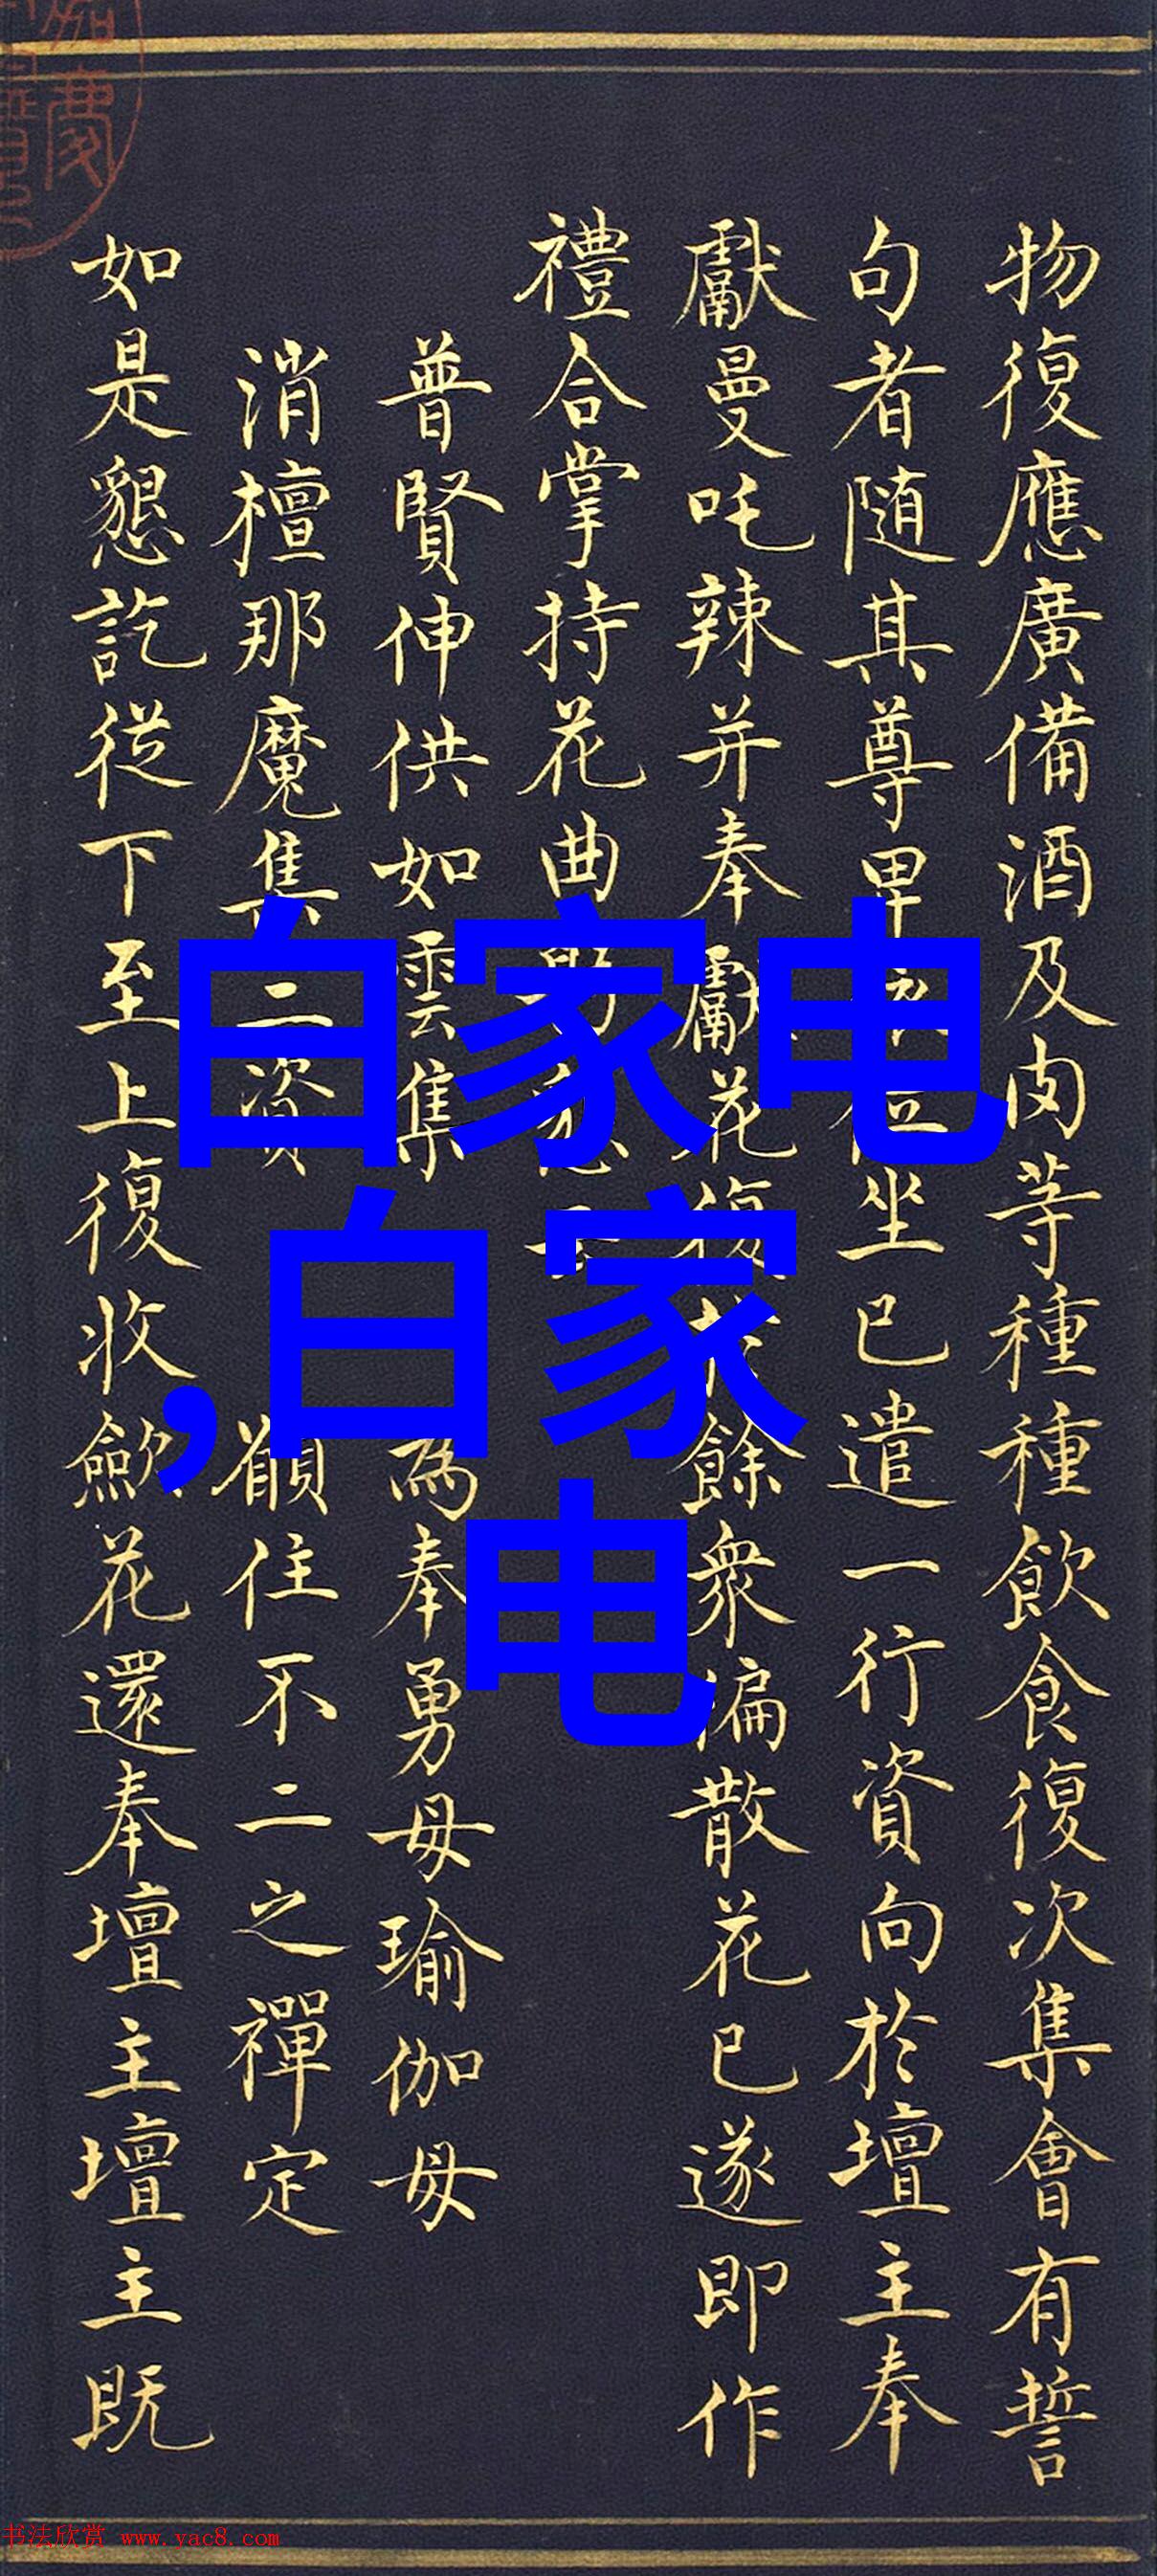 物復應廣備酒及肉等種種飲食復次集會有誓
句者随其尊卑坐已遣一行資向於壇主奉
獻曼吒辣并奉獻花復餘衆徧散花已遂即作
禮合掌持花曲
普賢伸供如雲集為奉勇母瑜伽母
消檀那魔集二資顧住不二之禪定
如是懇訖從下至上復收歛花還奉壇主壇主既
白家电
,白家
电
书法欣赏 www.yac8.com